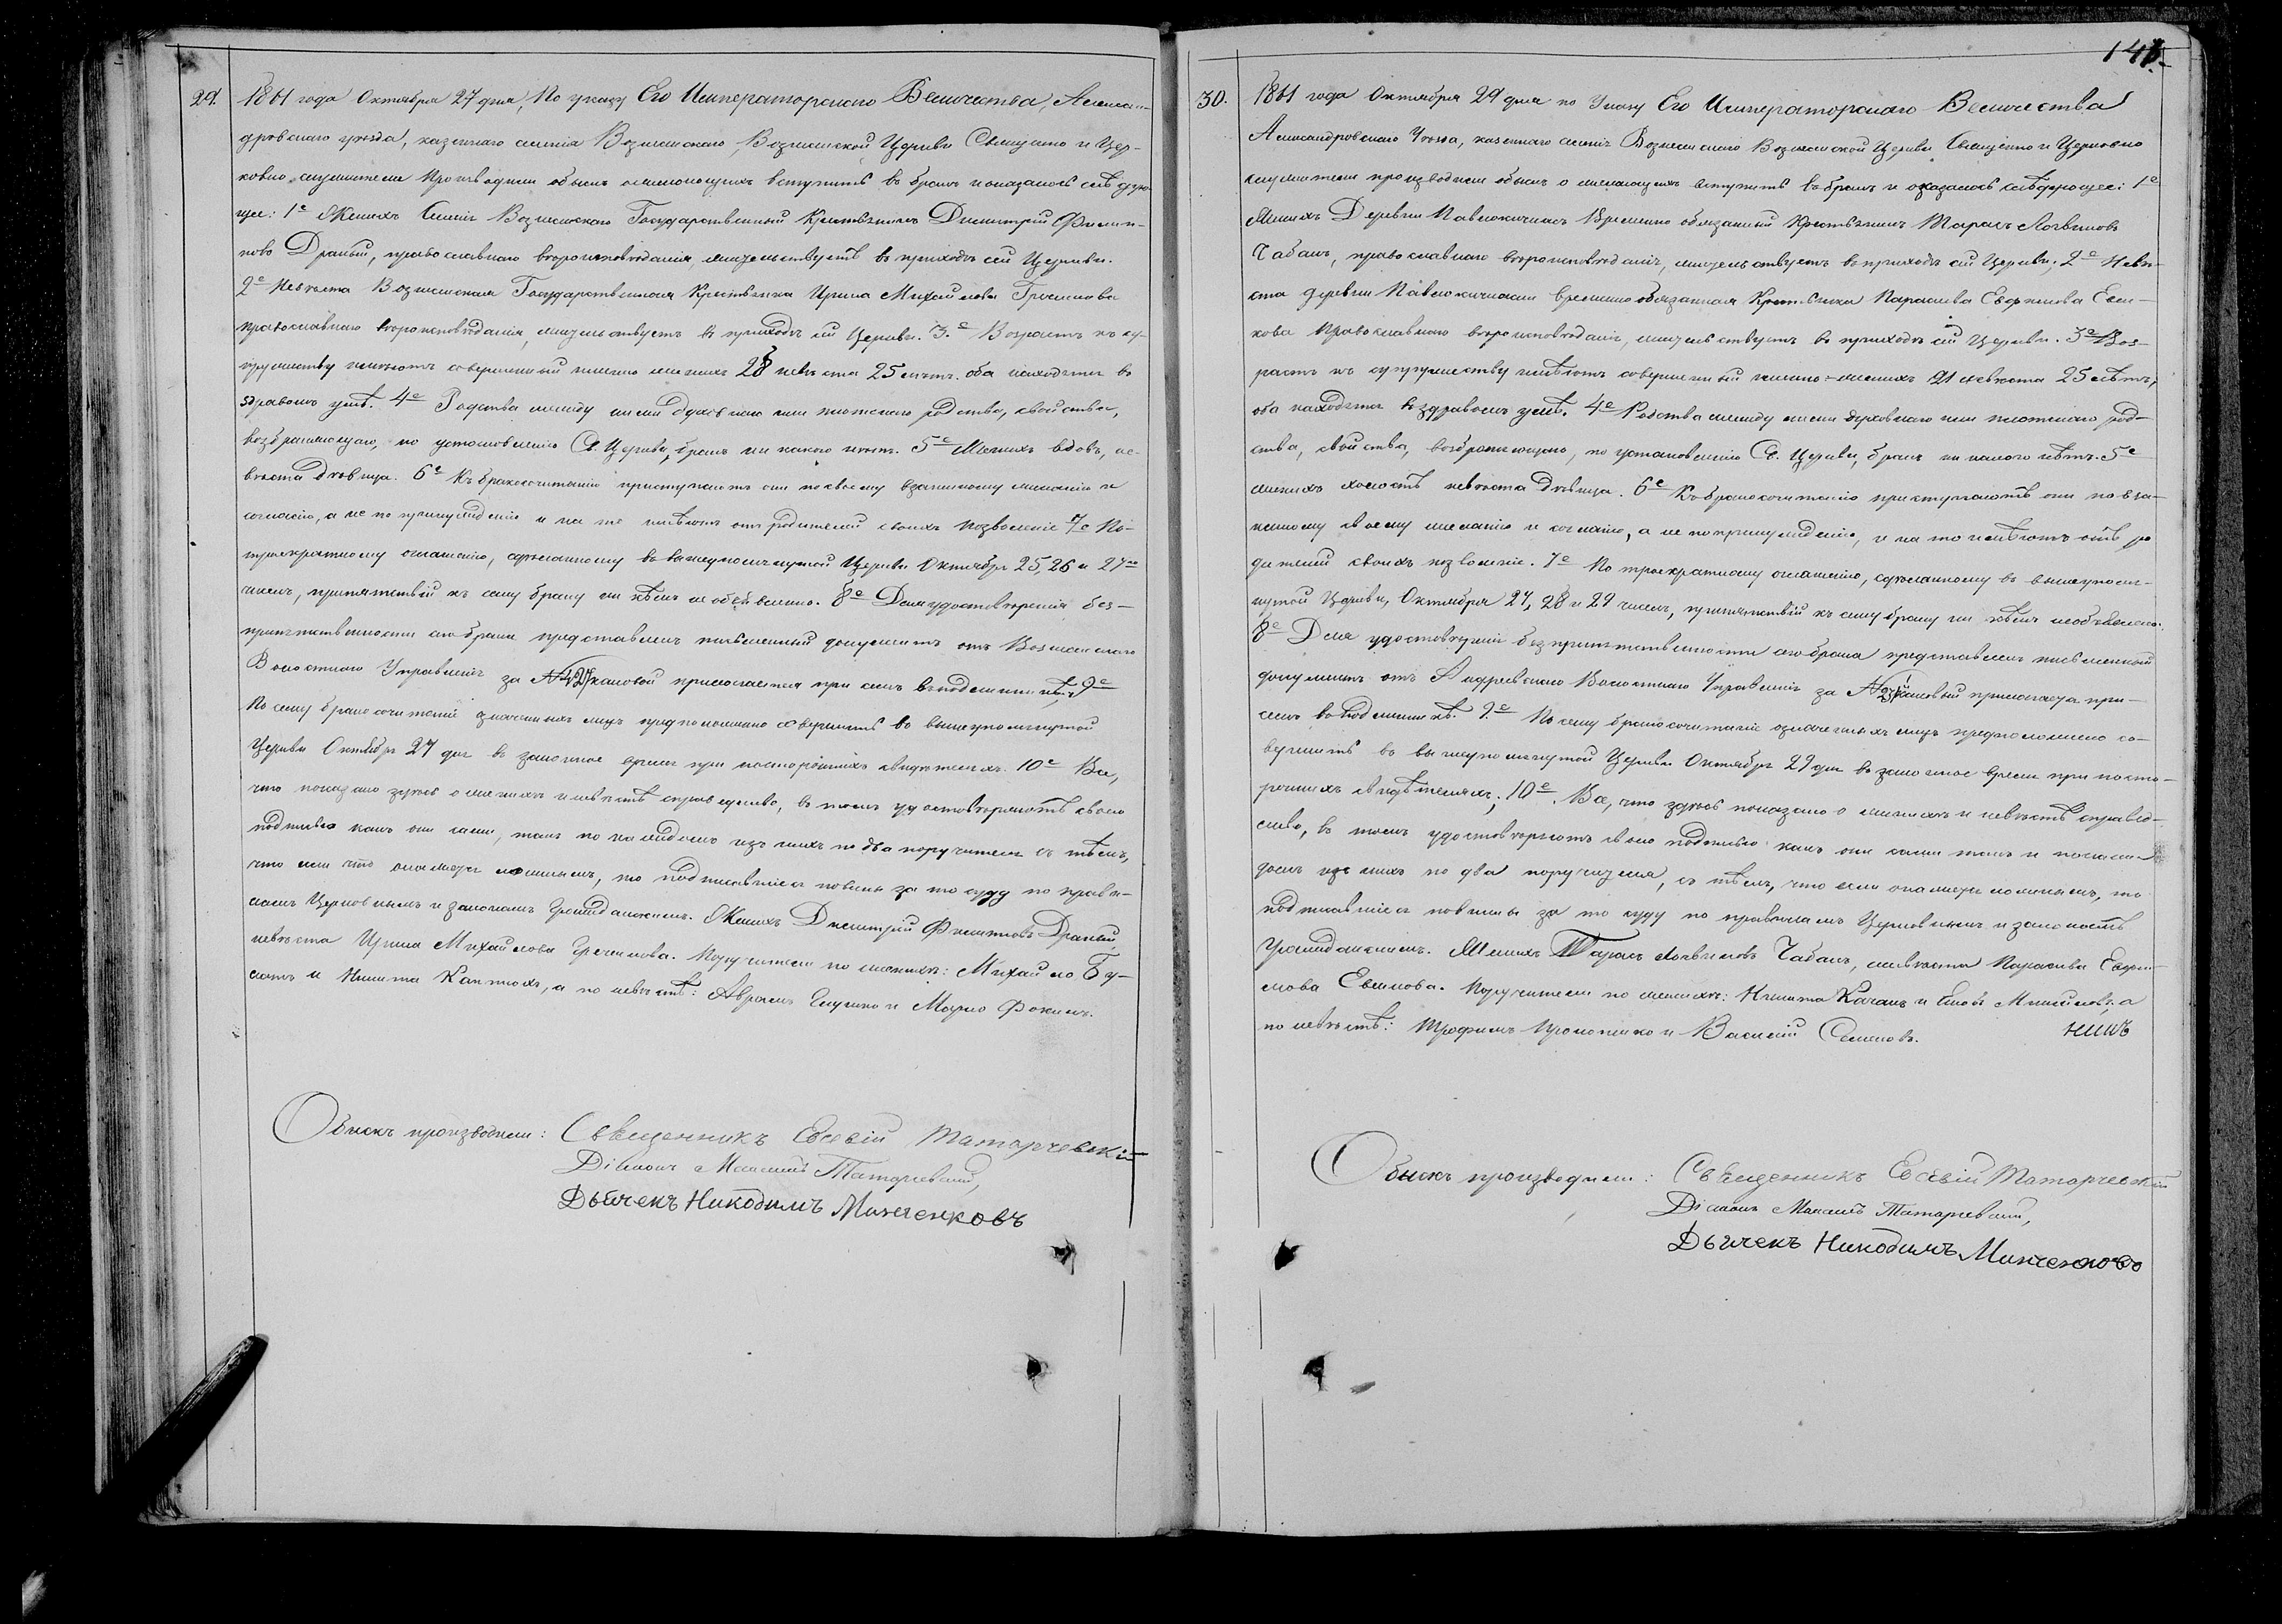 29.
1861 года Октября 27 дня, По указу Его Императорскаго Величества, Алексан-
дровскаго уѣзда, казеннаго селенія Вознесенскаго, Вознесенской Церкви Священно и Цер-
ковно служители Производили обыскъ о желающихъ вступить въ бракъ и оказалось слѣдую-
щее: 1е Женихъ Селенія Вознесенскаго Государственный Крестьянинъ Димитрій Филип-
повъ Драный, православнаго вѣроисповѣданія, жительствуетъ въ приходѣ сей Церкви.
2е Невѣста Вознесенская Государственная Крестьянка Ирина Михайлова Гречкинова
православнаго вѣроисповѣданія, жительствуетъ въ приходѣ сей Церкви. 3.е Возрастъ къ су-
пружеству имѣютъ совершенный именно женихъ 28 невѣста 25 лѣтъ. оба находятся въ
здравомъ умѣ. 4е Родства между ними духовнаго или плотскаго родства, свойства,
возбраняющаго, по установленію Св. Церкви, бракъ ни какого нѣтъ. 5е Женихъ вдовъ, не-
вѣста дѣвица. 6е Къ бракосочетанію приступаютъ они по своему взаимному желанію и
согласію, а не по принужденію и на то имѣютъ отъ родителей своихъ позволеніе 7е По
троекратному оглашенію, сдѣланному въ вышеупомянутой Церкви Октября 25, 26 и 27го
чиселъ, препятствій къ сему браку ни кѣмъ не объявлено. 8е Для удостовѣренія без-
препятственности сего брака представленъ письменный документъ отъ Вознесенскаго
Волостнаго Управленія за № каковой прилагается при семъ въ подлинникѣ, 9е
По сему бракосочетаніе означенныхъ лицъ предположено совершить въ вышеупомянутой
Церкви Октября 27 дня въ законное время при постороннихъ свидѣтеляхъ. 10е Все,
что показано здѣсь о женихѣ и невѣстѣ справедливо, въ томъ удостовѣряютъ своею
подписью какъ они сами, такъ по каждомъ изъ нихъ по два поручителя съ тѣмъ,
что если что окажется ложнымъ, то подписавшіеся повины за то суду по прави-
ламъ Церковнымъ и законамъ Гражданскимъ. Женихъ Димитрій Филиповъ Драный,
невѣста Ирина Михайлова Гречкинова. Поручители по женихѣ: Михайло Бу-
латъ и Никита Каптюхъ, а по невѣстѣ: Аврамъ Глушко и Марко Фокинъ.
Обыскъ производили: Священникъ Евсевій Татарчевскій
Діаконъ Максимъ Татарчевскій,
Дьячекъ Никодимъ Минченковъ
141.
30.
1861 года Октября 29 дня по Указу Его Императорскаго Величества
Александровскаго Уѣзда, казеннаго селенія Вознесенскаго Вознесенской Церкви Священно и Церковно
служители производили обыскъ о желающихъ вступить въ бракъ и оказалось слѣдующее: 1е
Женихъ Деревни Павлокичкасъ Временно обязанный Крестьянинъ Тарасъ Логвиновъ
Чабанъ, православнаго вѣроисповѣданія, жительствуетъ въ приходѣ сей Церкви; 2е Невѣ-
ста деревни Павлокичкасъ временно обязанная Крестьянка Параскева Евфимова Евси-
кова Православнаго вѣроисповѣданія, жительствуетъ въ приходѣ сей Церкви. 3е Воз-
растъ къ супружеству имѣютъ совершенный именно женихъ 21 невѣста 25 лѣтъ,
оба находятся въ здравомъ умѣ. 4е Родства между ними духовнаго или плотскаго род-
ства, свойства, возбраняющаго, по установленію Св. Церкви, бракъ ни какого нѣтъ. 5е
женихъ холостъ невѣста дѣвица. 6е Къ бракосочетанію приступаютъ они по вза-
имному своему желанію и согласію, а не по принужденію, и на то имѣютъ отъ ро
дителей своихъ позволеніе. 7е По троекратному оглашенію, сдѣланному въ вышеупомя-
нутой Церкви, Октября 27, 28 и 29 чиселъ, препятствій къ сему браку ни кѣмъ необъявлено.
8е Для удостовѣренія безпрепятственности сего брака представленъ письменный
документъ отъ Андреевскаго Волостнаго Управленія за № каковый прилагается при
семъ въ подлинникѣ. 9.е По сему бракосочетаніе означенныхъ лицъ предположено со-
вершить въ вышеупомянутой Церкви Октября 29 дня въ законное время при посто-
роннихъ свидѣтеляхъ; 10е. Все, что здѣсь показано о женихѣ и невѣстѣ справед-
ливо, въ томъ удостовѣряютъ своею подписью какъ они сами такъ и по каж-
домъ изъ нихъ по два поручителя, съ тѣмъ, что если окажется ложнымъ, то
подписавшіеся повинны за то суду по правиламъ Церковнымъ и законамъ
Гражданскимъ. Женихъ Тарасъ Логвиновъ Чабанъ, невѣста Параскева Евфи-
мова Евсикова. Поручители по женихѣ: Никита Качанъ и а
по невѣстѣ: Трофимъ Прокопенко и Василій Семеновъ.
Обыскъ производили: Священникъ Евсевій Татарчевскій
Діаконъ Максимъ Татарчевскій,
Дьячекъ Никодимъ Минченковъ